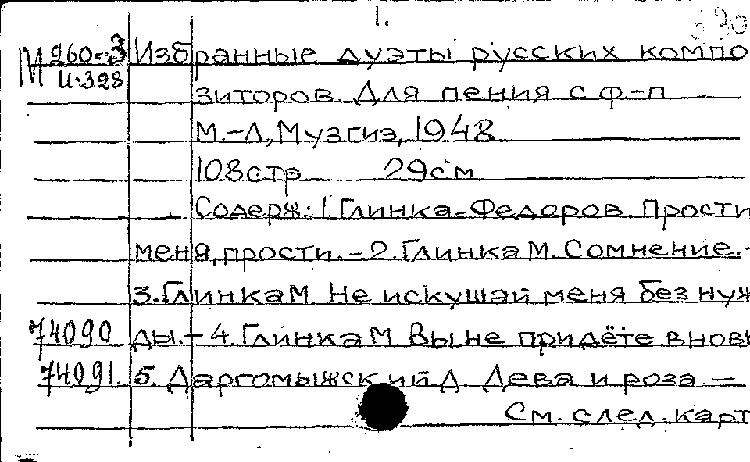 1.
М 960-3 Избранные дуэты русских компо
И-328 зиторов. Для пения с ф-п
М.-Л, Музгиз, 1948
108стр 29см
Содерж: 1. Глинка-Федоров. Прости
меня, прости. - 2. Глинка М. Сомнение. -
3. Глинка М. Не искушай меня без нуж
74090 ды. - 4. Глинка М Вы не придёте вновь
74091 5. Даргомыжский А. Дева и роза -
См. след. карт